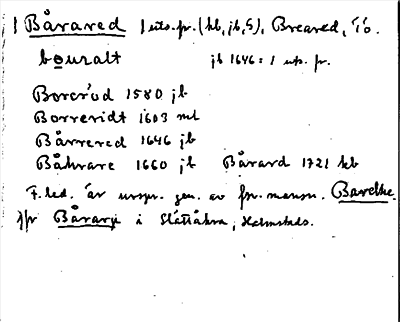 Bårared 1 uts.fr. (kb, jb, S), Breared, Tö.
bouralt jb 1646: 1 uts. fr.
Borcröd 1580 jb
Borreridt 1603 ml
Bårrered 1646 jb
Båhrare 1660 jb Bårard 1721 kb
F.led. är urspr. gen. av fsv. mansn. Barelke.
Jfr Bårarp i Slättåkra, Halmstads.